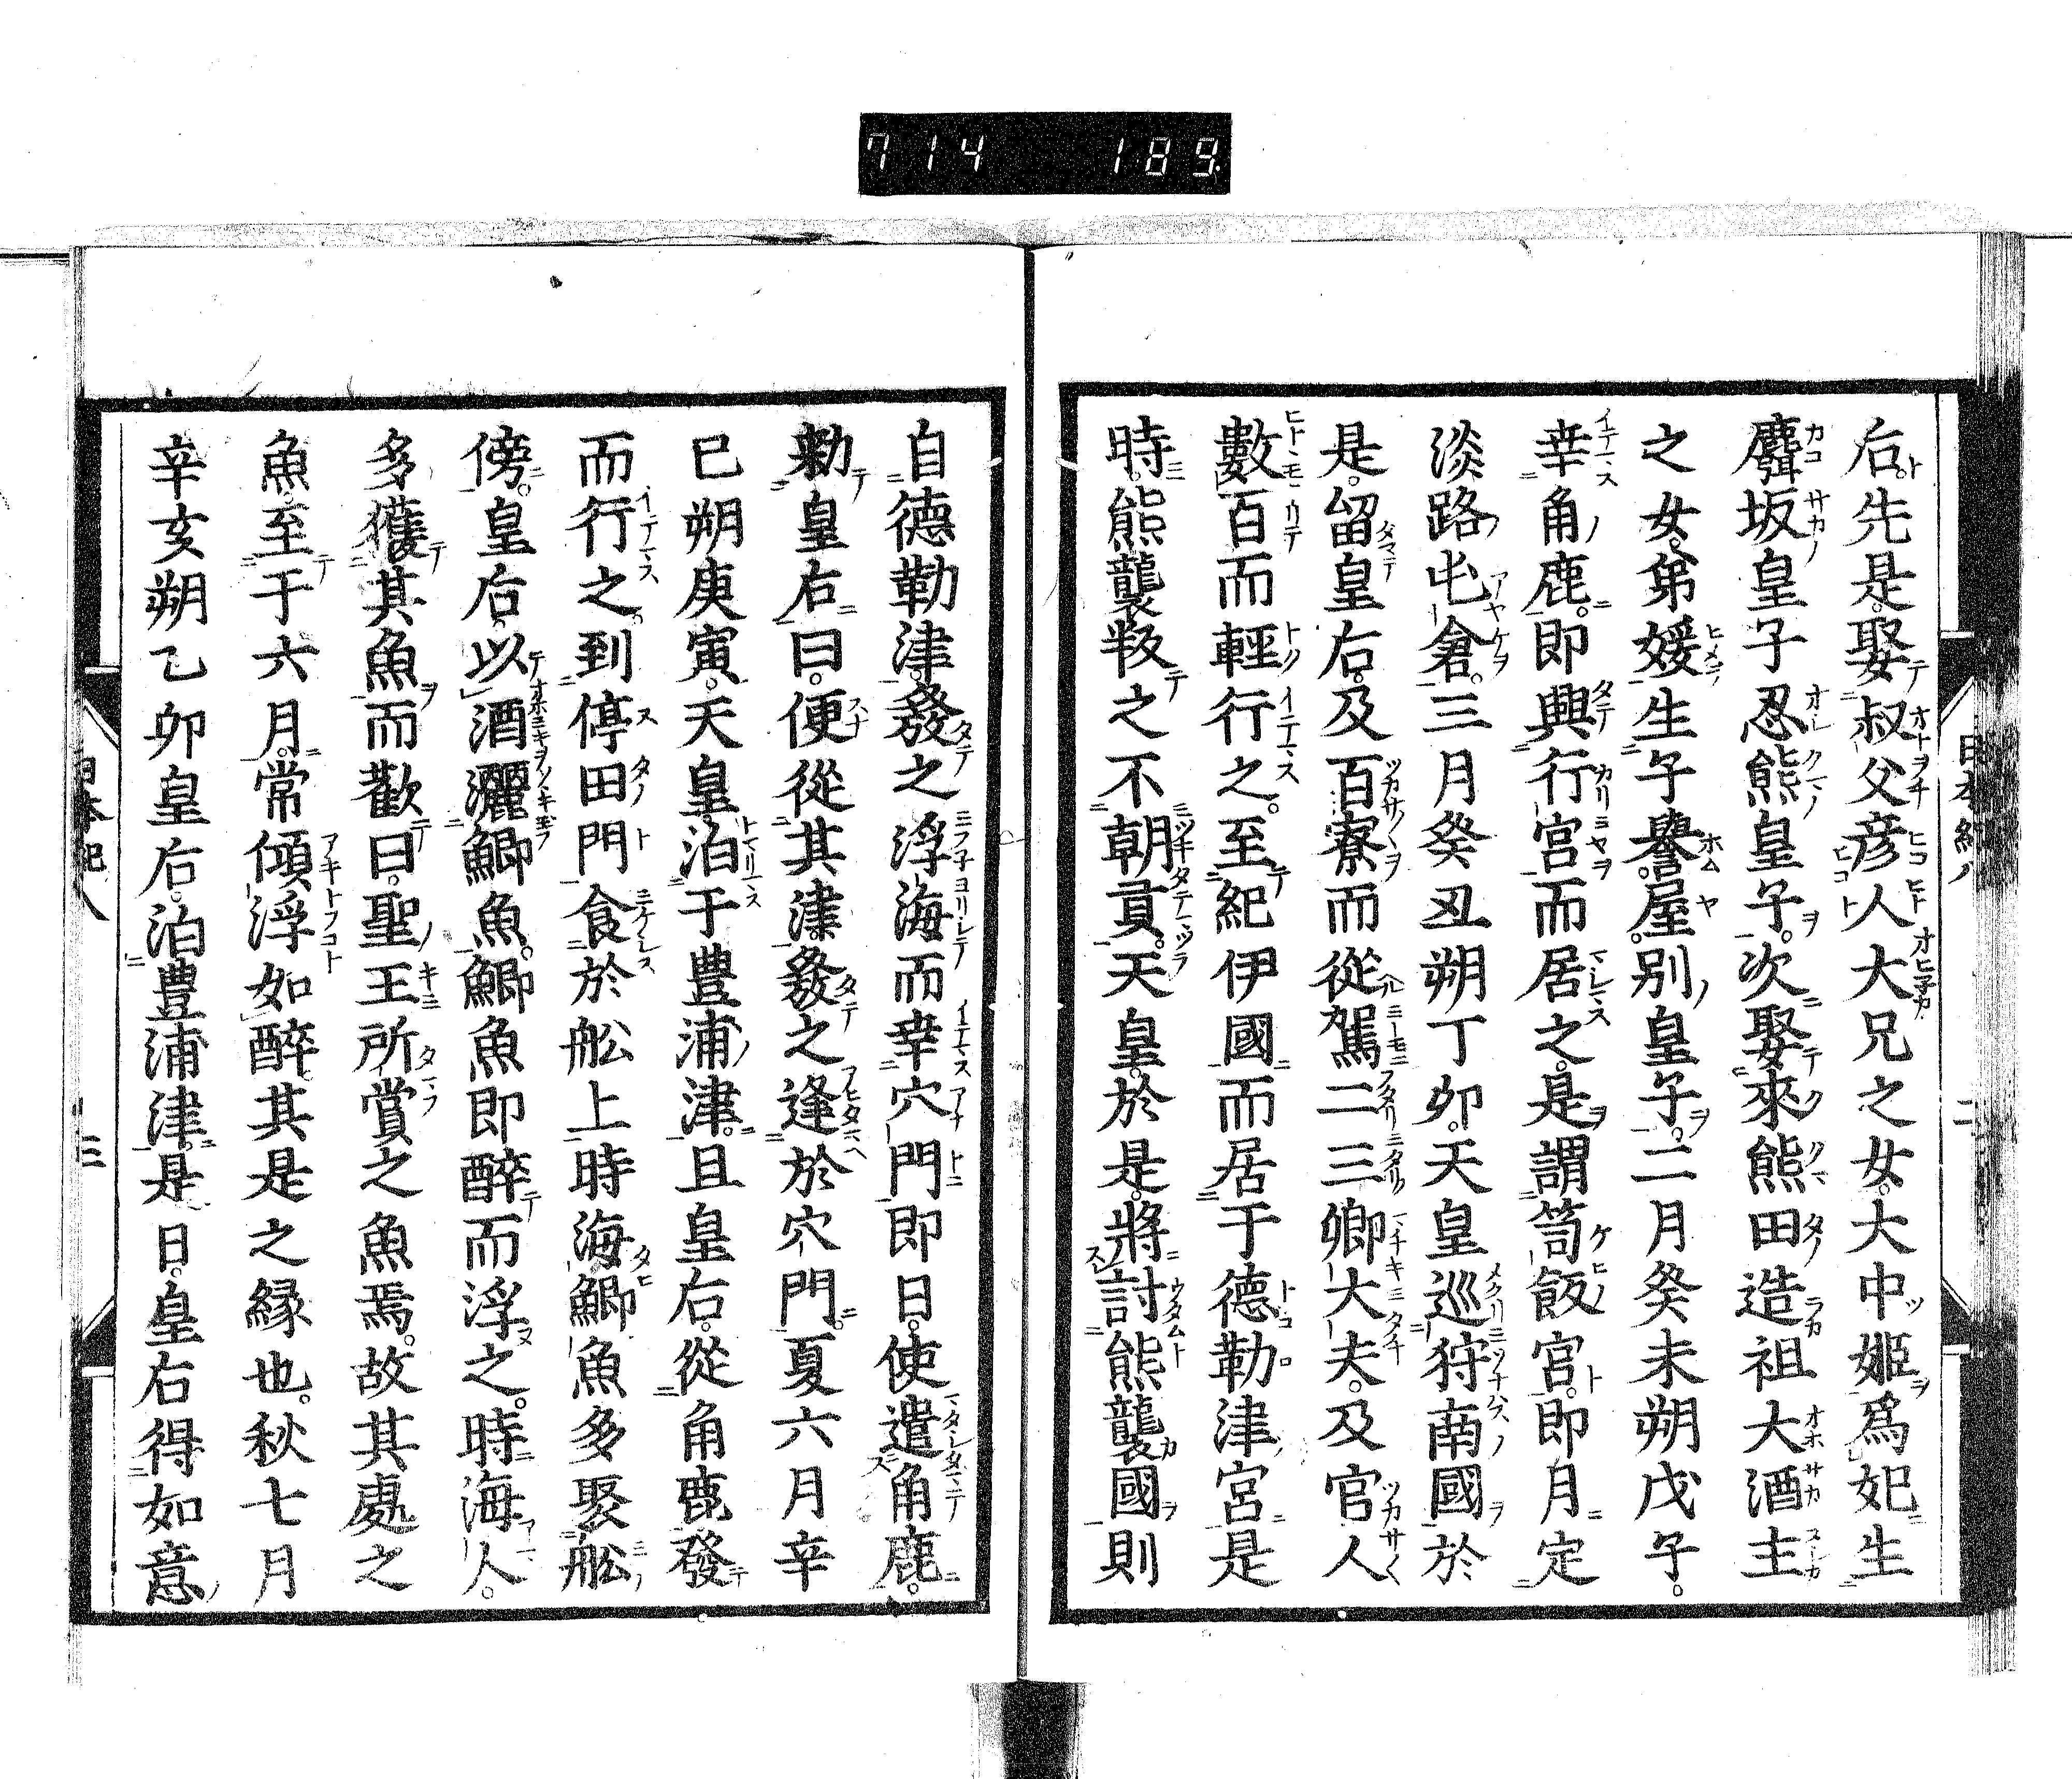 714 189
后先是娶叔父彦人大兄之女大中姫爲妃生
麛坂皇子忍熊皇子次娶來熊田造祖大酒主
之女弟媛生子譽屋別皇子二月癸未朔戊子
幸角鹿即興行宮而居之是謂笥飯宮即月定
淡路屯倉三月癸丑朔丁卯天皇巡狩南國於
是留皇后及百寮而從駕二三卿大夫及官人
數百而輕行之至紀伊國而居于德勒津宮是
時熊襲叛之不朝貢天皇於是將討熊襲國則
日本紀八 二
自德勒津發之浮海而幸穴門即日使遣角鹿
勅皇后曰便從其津發之逢於穴門夏六月辛
巳朔庚寅天皇泊于豊浦津且皇后從角鹿發
而行之到停田門食於舩上時海鯽魚多聚舩
傍皇后以酒灑鯽魚鯽魚即醉而浮之時海人
多獲其魚而歡曰聖王所賞之魚焉故其處之
魚至于六月常傾浮如醉其是之縁也秋七月
辛亥朔乙卯皇后泊豊浦津是日皇后得如意
日本紀八 三